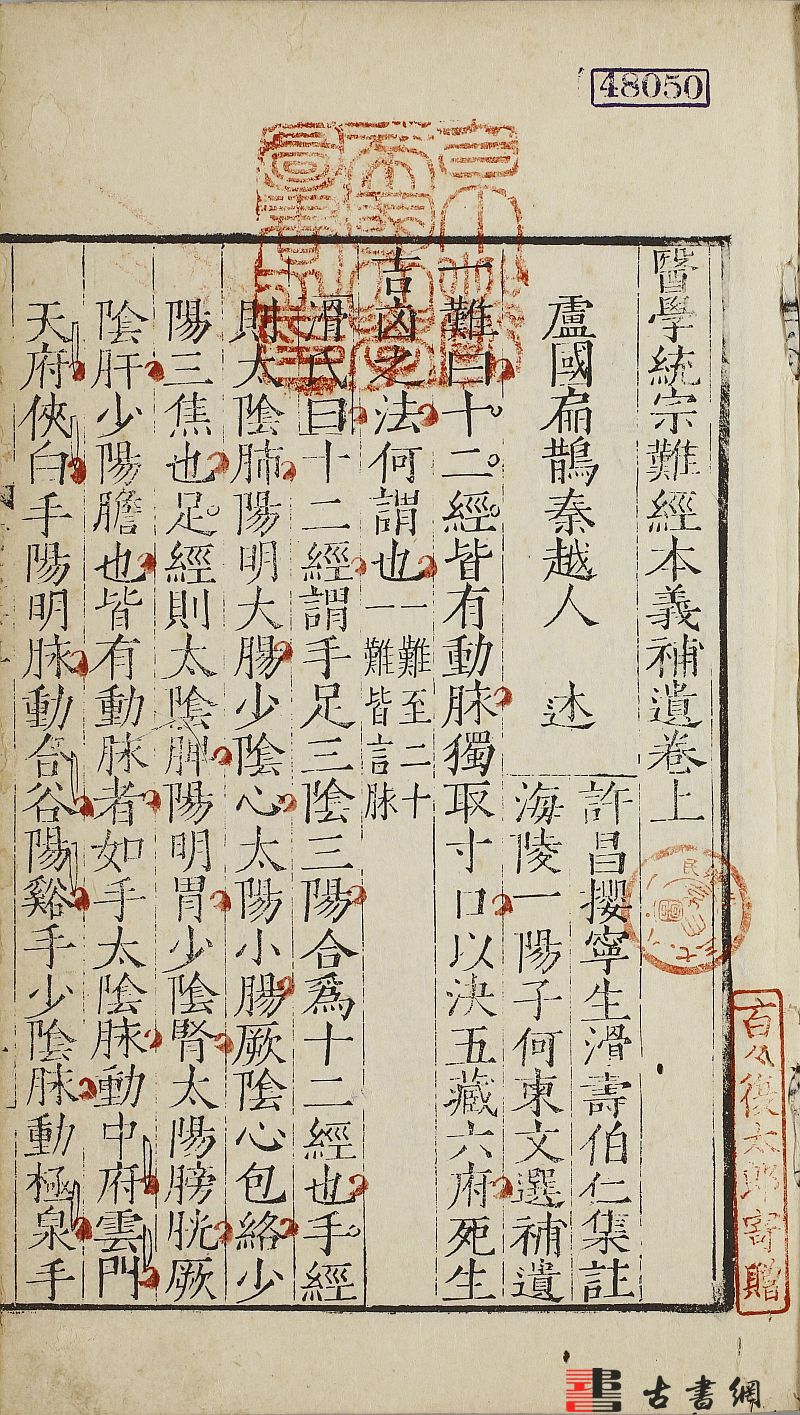 48050
醫學統宗難經本義補遺卷上
盧國扁鵲秦越人 述
許昌攖寧生滑壽伯仁集註
海陵一陽子何柬文選補遺
一難曰十二經皆有動脉獨取寸口以決五藏六府死生
吉凶之法何謂也
一難至二十
難皆言脉
滑氏曰十二經謂手足三陰三陽合爲十二經也手經
則太陰肺陽明大腸少陰心太陽小腸厥陰心包絡少
陽三焦也足經則太陰脾陽明胃少陰腎太陽膀胱厥
陰肝少陽膽也皆有動脉者如手太陰脉動中府雲門
天府俠白手陽明脉動合谷陽谿手少陰脉動極泉手
百々復太郎寄贈
古書網